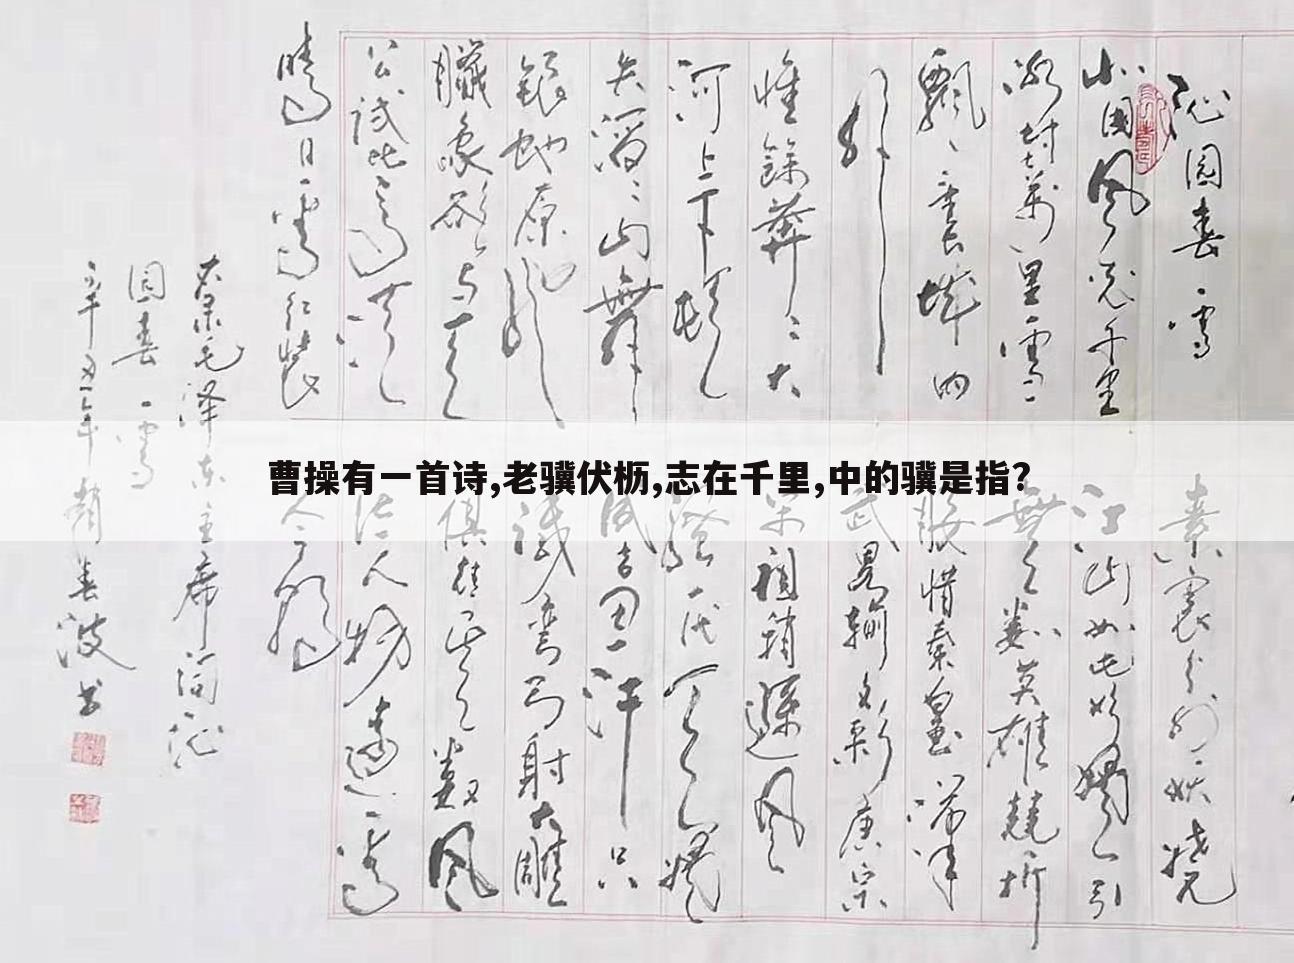 曹操有一首诗,老骥伏枥,志在千里,中的骥是指?
沁园春 雪
北国风光千里
冰封万里雪
飘望长城内
外
惟餘莽大
河上下顿
失滔山舞
银蛇原驰
腊象欲与天
公试比高须
晴日看红装
素裹分外妖娆
江山如此多娇引
无数英雄竞折
腰惜秦皇汉
武畧输文彩唐宗
宋祖稍逊风
骚一代天骄
成吉思汗只
识弯弓射大雕
俱往矣数风
流人物还看
今朝
毛泽东主席词沁
园春 雪
辛丑年 春波书